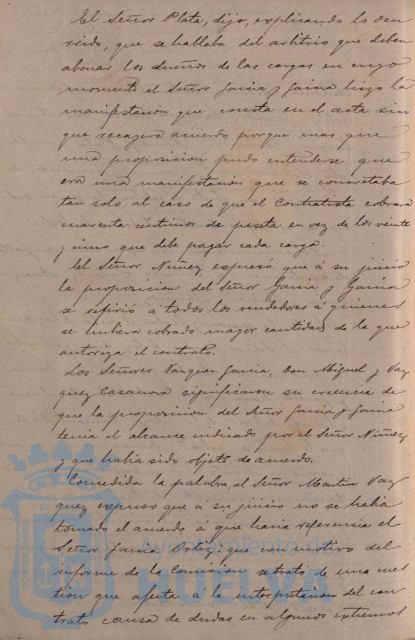 El Señor Plata, dijo, explicando lo ocu
rrido, que se hablaba del arbitrio que deben
abonar los dueños de las cargas en cuyo
momento el Señor Garcia y Garcia hizo la
manifestacion que consta en el acta sin
que recayera acuerdo porque mas que
una proposicion pudo entenderse que
era una manifestacion que se concretaba
tan solo al caso de que el Contratista cobrara
cuarenta centimos de peseta en vez de los veinte
y cinco que debe pagar cada carga.
El Señor Nuñez expresó que á su juicio
la proposicion del Señor Garcia y Garcia
se refirió á todos los vendedores á quienes
se hubiera cobrado mayor cantidad de la que
autoriza el contrato.
Los Señores Vazquez Garcia, Don Miguel y Vaz
quez Casanova significaron su creencia de
que la proposicion del Señor Garcia y Garcia
tenia el alcance indicado por el Señor Nuñez
y que habia sido objeto de acuerdo.
Concedida la palabra al Señor Martin Vaz
quez expuso que á su juicio no se habia
tomado el acuerdo á que hacia referencia el
Señor Garcia Ortiz: que con motivo del
informe de la Comision se trató de una cues
tion que afecta á la interpretacion del con
trato causa de dudas en algunos extremos
Ayuntamiento de
HUELVA